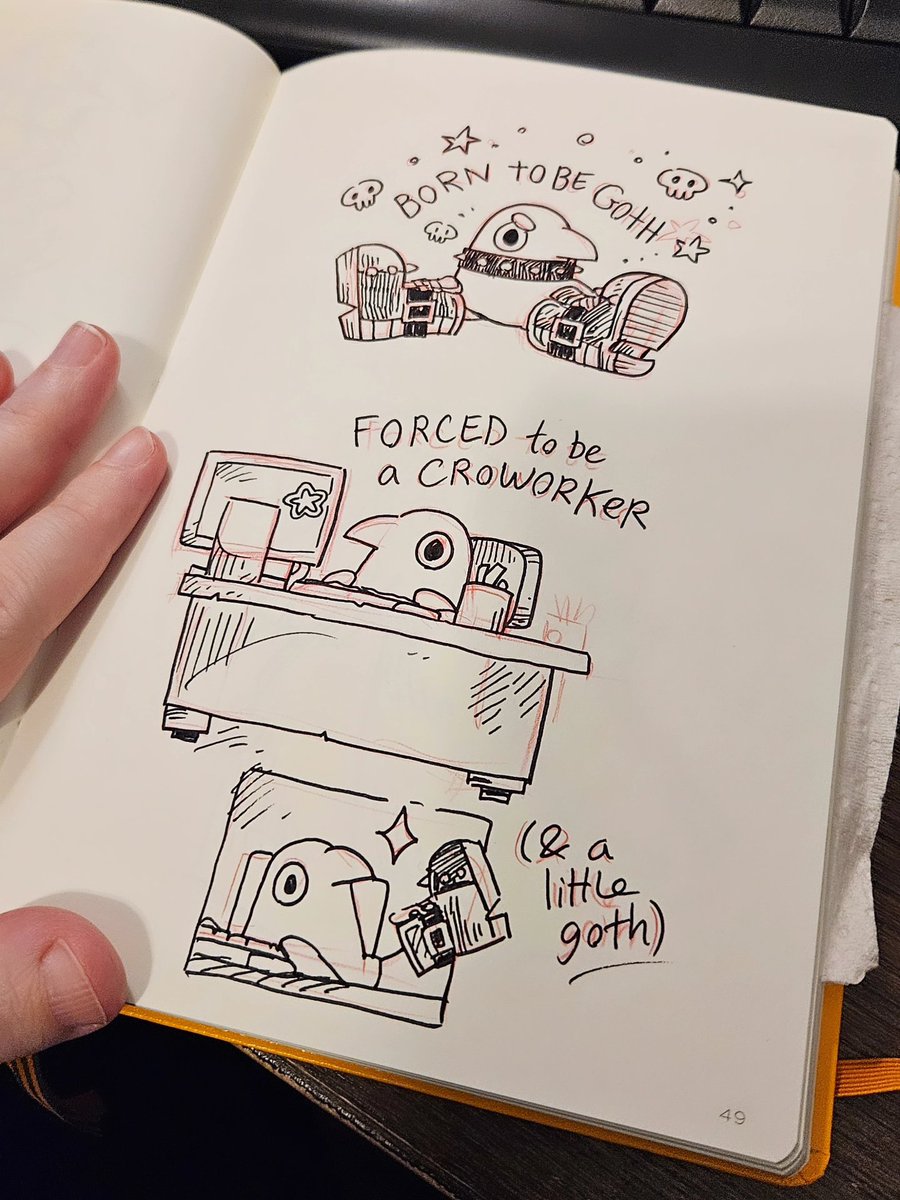 BORN TO BE GOTH
FORCED to be
a CROWORKER
(& a
little
goth)
49